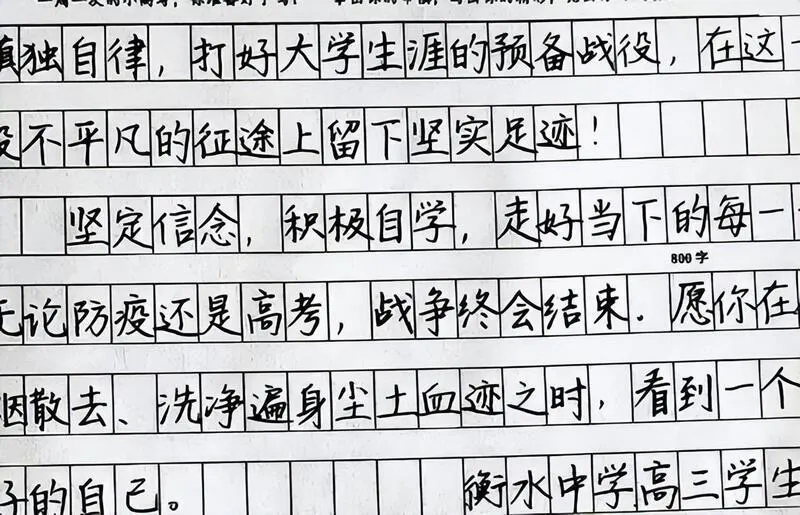 慎独自律，打好大学生涯的预备战役，在这一
段不平凡的征途上留下坚实足迹！
坚定信念，积极自学，走好当下的每一
800字
无论防疫还是高考，战争终会结束．愿你在
烟散去、洗净遍身尘土血迹之时，看到一个
子的自己。 衡水中学高三学生